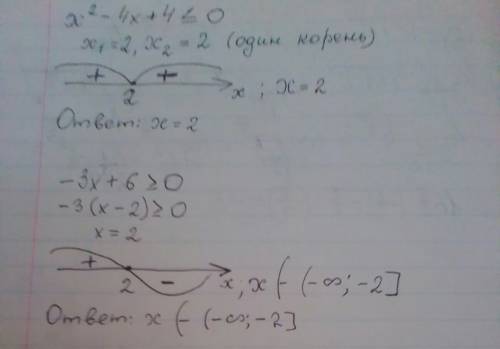 x² - 4x + 4 ≤ 0
x₁ = 2, x₂ = 2 (один корень)
+ +
2 x ; x = 2
Ответ: x = 2
-3x + 6 ≥ 0
-3(x - 2) ≥ 0
x = 2
+ -
2 x, x (- (-∞; -2]
Ответ: x (- (-∞; -2]